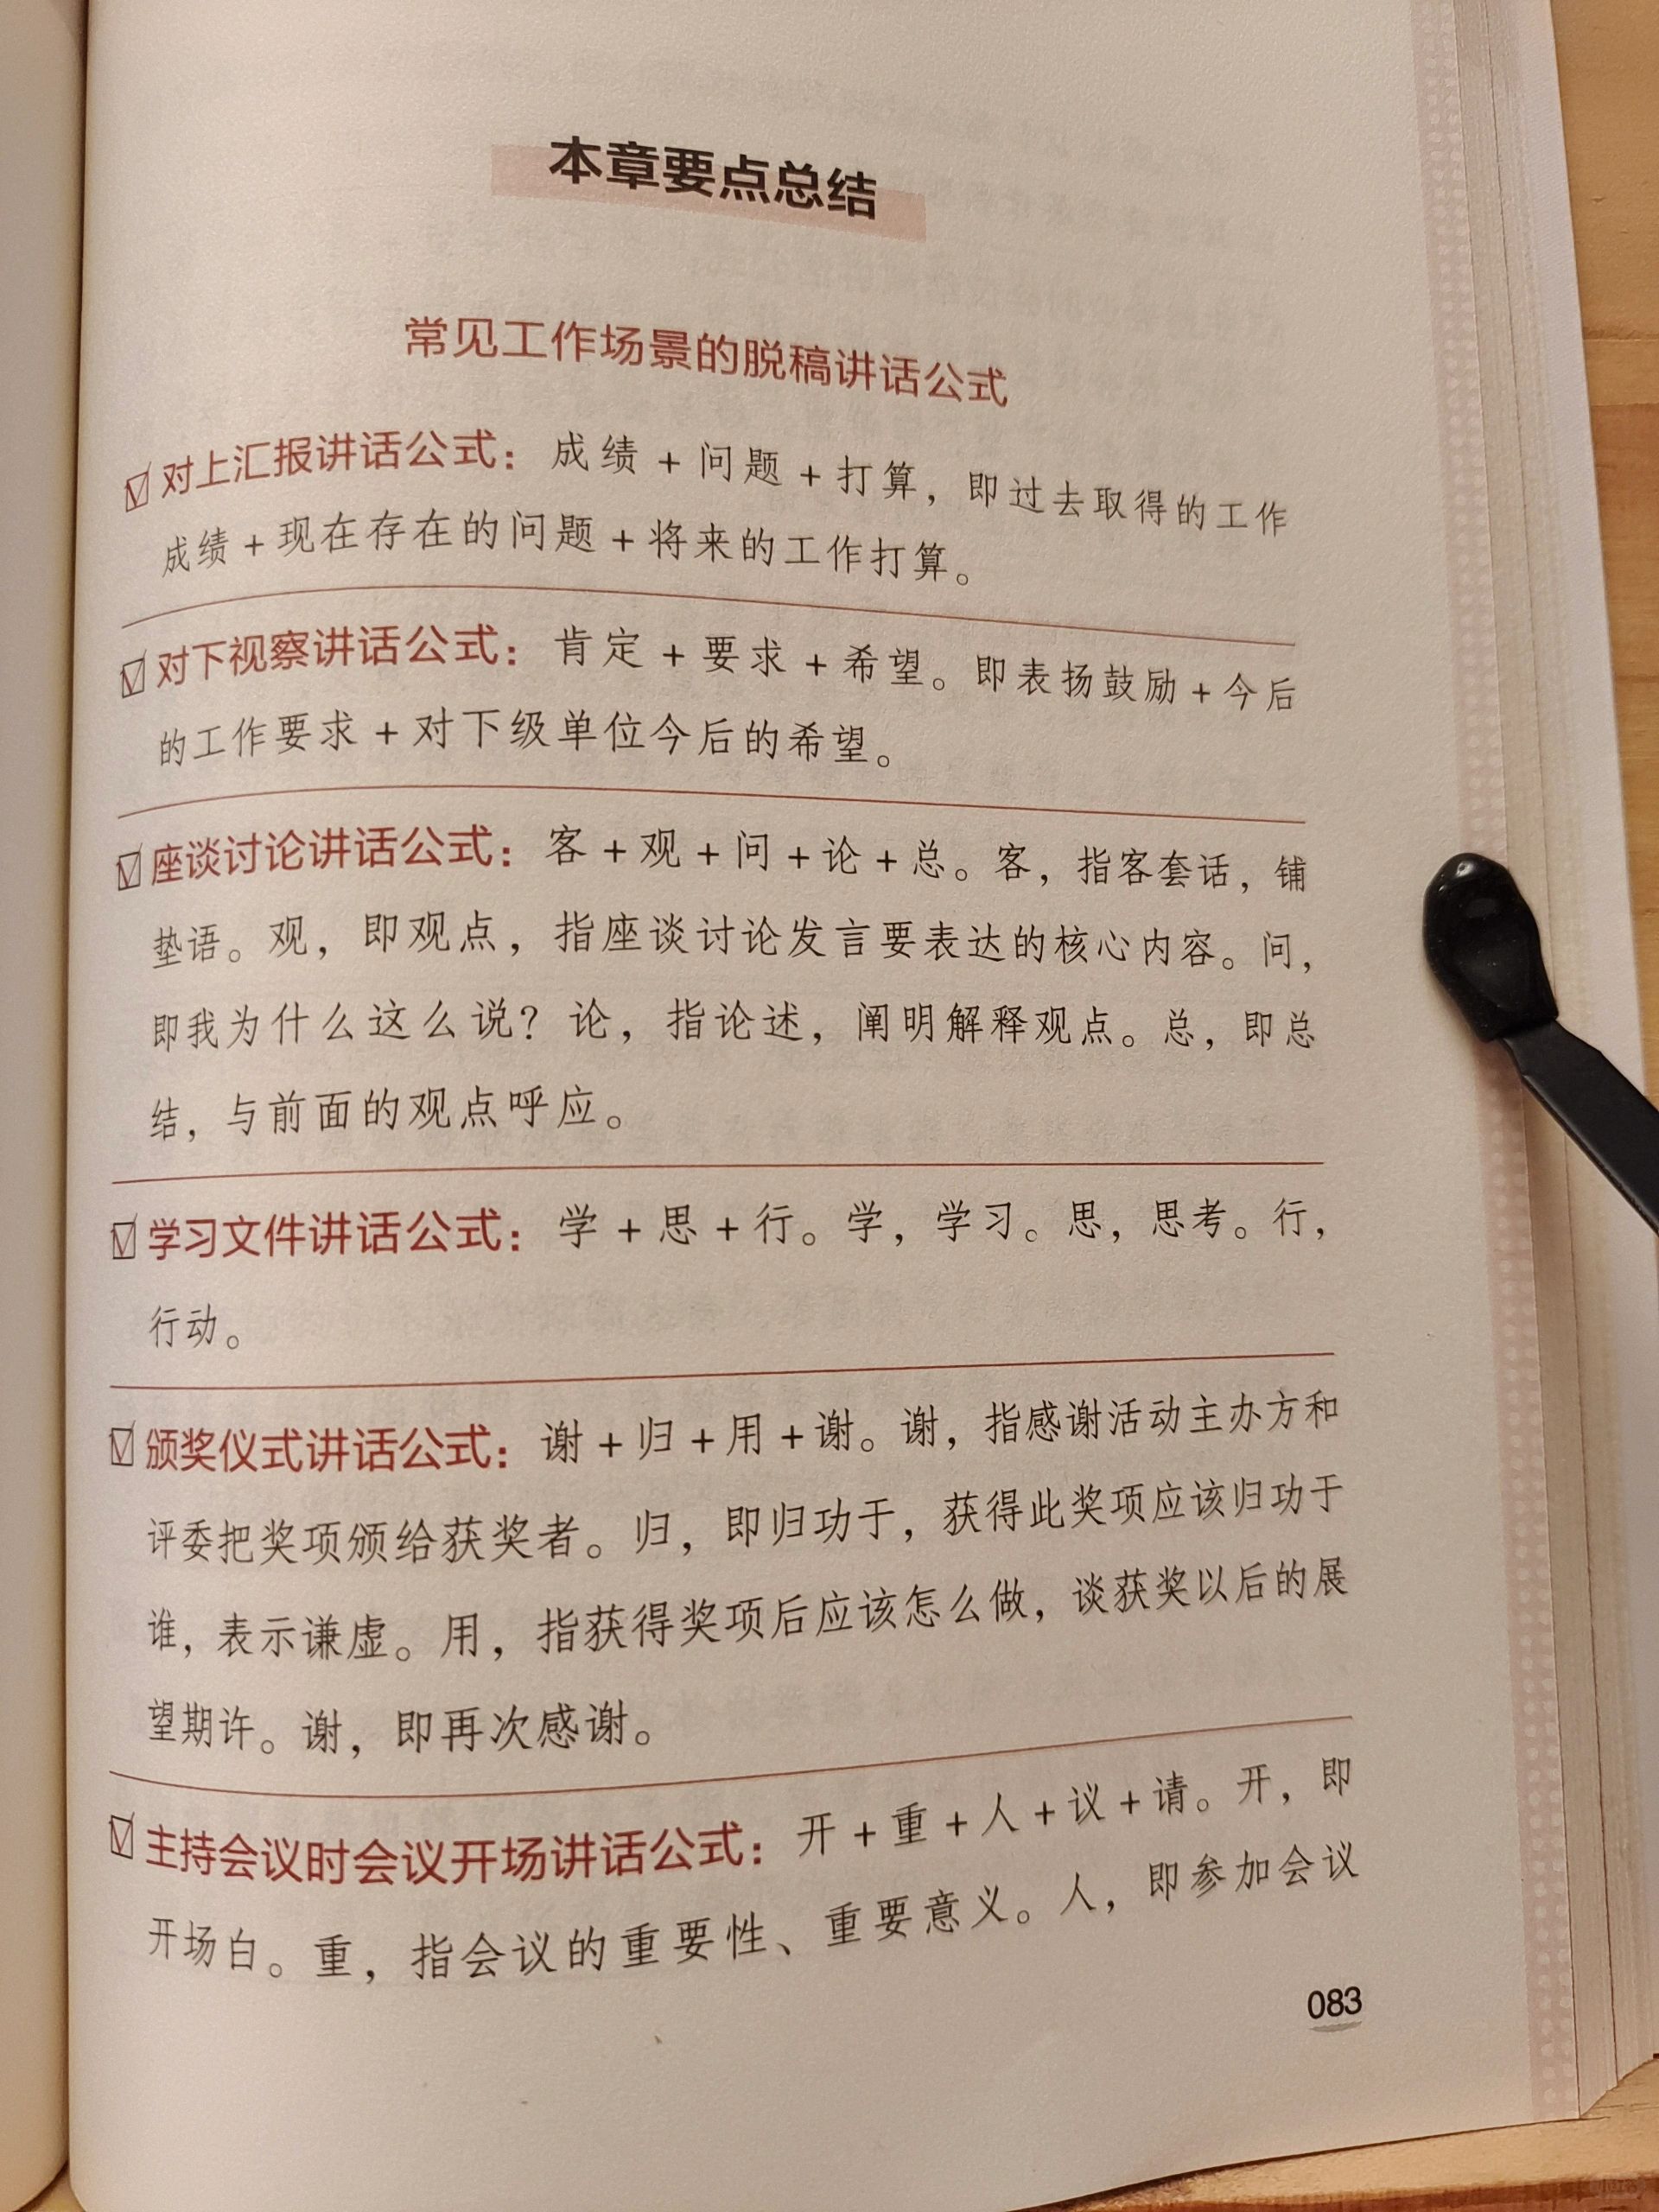 本章要点总结
常见工作场景的脱稿讲话公式
对上汇报讲话公式：成绩＋问题＋打算，即过去取得的工作
成绩＋现在存在的问题＋将来的工作打算。
对下视察讲话公式：肯定＋要求＋希望。即表扬鼓励＋今后
的工作要求＋对下级单位今后的希望。
座谈讨论讲话公式：客＋观＋问＋论＋总。客，指客套话，铺
垫语。观，即观点，指座谈讨论发言要表达的核心内容。问，
即我为什么这么说？论，指论述，阐明解释观点。总，即总
结，与前面的观点呼应。
学习文件讲话公式：学＋思＋行。学，学习。思，思考。行，
行动。
颁奖仪式讲话公式：谢＋归＋用＋谢。谢，指感谢活动主办方和
评委把奖项颁给获奖者。归，即归功于，获得此奖项应该归功于
谁，表示谦虚。用，指获得奖项后应该怎么做，谈获奖以后的展
望期许。谢，即再次感谢。
主持会议时会议开场讲话公式：开＋重＋人＋议＋请。开，即
开场白。重，指会议的重要性、重要意义。人，即参加会议
083